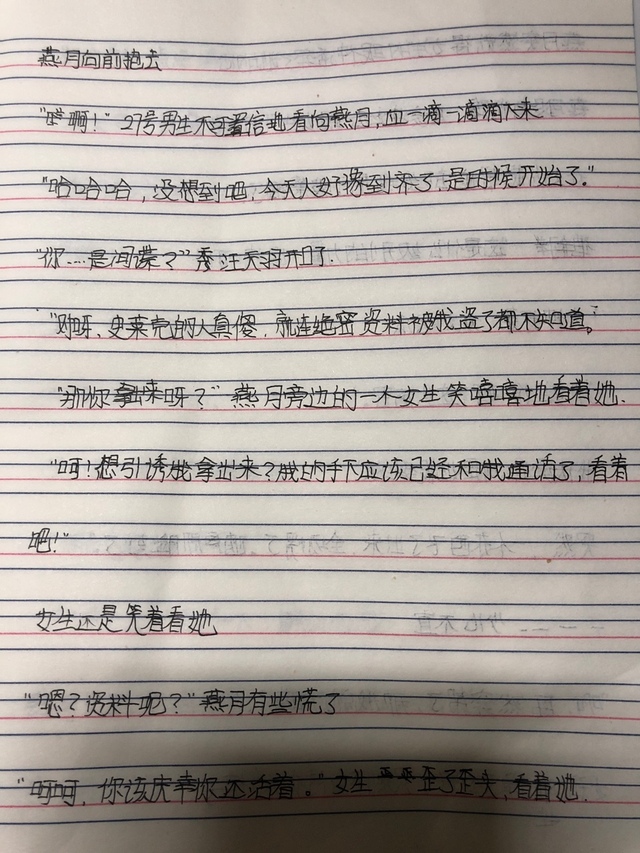 燕月向前抱去
"哎啊！" 27号男生不可置信地看向燕月，血一滴一滴滴下来
"哈哈哈，没想到吧，今天人好像到齐了，是时候开始了。"
"你……是间谍？" 秀汪天羽开口了.
"对呀、史莱克的人真傻，就连绝密资料被我盗了都不知道。
"那你拿出来呀？" 燕月旁边的一木女生笑嘻嘻地看着她.
"呵！想引诱我拿出来？我的手下应该已经和我通话了，看着
吧！"
女生还是笑着看她
"嗯？资料呢？" 燕月有些慌了
"呵呵，你该庆幸你还活着。" 女生歪了歪头，看着她.